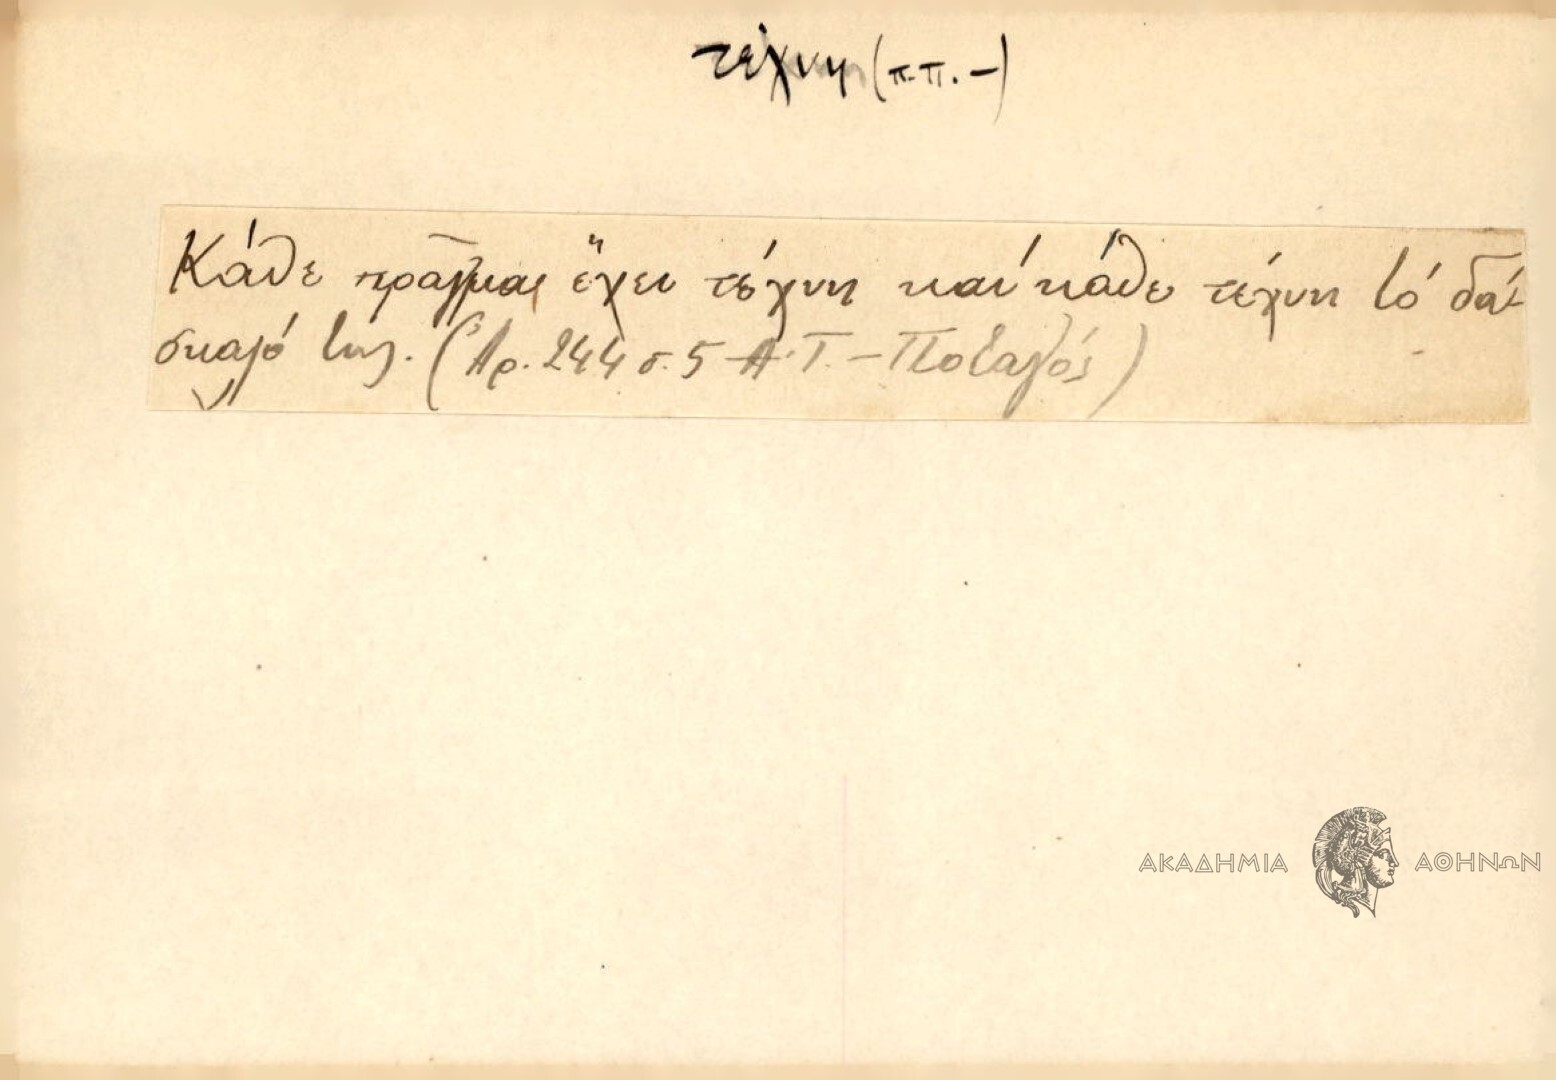 τέχνη (π.π. -)
Κάθε πρᾶγμα ἔχει τέχνη καί κάθε τέχνη τό δά-
σκαλό της. (Ἀρ. 244 σ. 5 Α.Τ. - Ποταγός)
ΑΚΑΔΗΜΙΑ ΑΘΗΝΩΝ